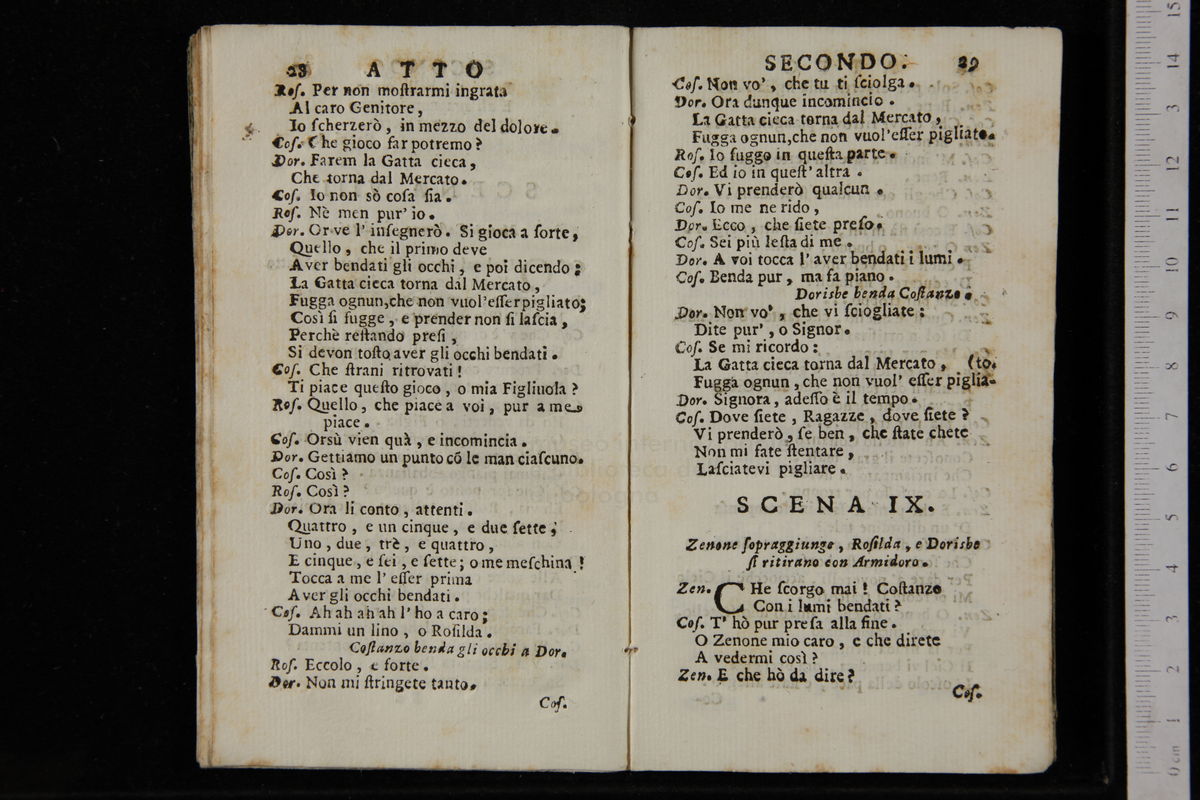 28 ATTO
Roſ. Per non moſtrarmi ingrata
Al caro Genitore,
Io ſcherzerò, in mezzo del dolore.
Coſ. Che gioco far potremo?
Dor. Farem la Gatta cieca,
Che torna dal Mercato.
Coſ. Io non sò coſa ſia.
Roſ. Nè men pur' io.
Dor. Or ve l' inſegnerò. Si gioca a ſorte,
Quello, che il primo deve
Aver bendati gli occhi, e poi dicendo;
La Gatta cieca torna dal Mercato,
Fugga ognun,che non vuol'eſſer pigliato;
Così ſi fugge, e prender non ſi laſcia,
Perchè reſtando preſi,
Si devon toſto aver gli occhi bendati.
Coſ. Che ſtrani ritrovati!
Ti piace queſto gioco, o mia Figliuola?
Roſ. Quello, che piace a voi, pur a me
piace.
Coſ. Orsù vien quà, e incomincia.
Dor. Gettiamo un punto cõ le man ciaſcuno.
Coſ. Così?
Roſ. Così?
Dor. Ora li conto, attenti.
Quattro, e un cinque, e due ſette;
Uno, due, trè, e quattro,
E cinque, e ſei, e ſette; o me meſchina!
Tocca a me l' eſſer prima
Aver gli occhi bendati.
Coſ. Ah ah ah ah l' ho a caro;
Dammi un lino, o Roſilda.
Coſtanzo benda gli occhi a Dor.
Roſ. Eccolo, e forte.
Dor. Non mi ſtringete tanto.
Coſ.
SECONDO. 29
Coſ. Non vo', che tu ti ſciolga.
Dor. Ora dunque incomincio.
La Gatta cieca torna dal Mercato,
Fugga ognun,che non vuol'eſſer pigliato.
Roſ. Io fuggo in queſta parte.
Coſ. Ed io in queſt' altra.
Dor. Vi prenderò qualcun.
Coſ. Io me ne rido,
Dor. Ecco, che ſiete preſo.
Coſ. Sei più leſta di me.
Dor. A voi tocca l' aver bendati i lumi.
Coſ. Benda pur, ma fa piano.
Dorisbe benda Coſtanzo.
Dor. Non vo', che vi ſciogliate:
Dite pur', o Signor.
Coſ. Se mi ricordo:
La Gatta cieca torna dal Mercato, (to.
Fugga ognun, che non vuol' eſſer piglia-
Dor. Signora, adeſſo è il tempo.
Coſ. Dove ſiete, Ragazze, dove ſiete?
Vi prenderò, ſe ben, che ſtate chete
Non mi fate ſtentare,
Laſciatevi pigliare.
SCENA IX.
Zenone ſopraggiunge, Roſilda, e Dorisbe
ſi ritirano con Armidoro.
Zen. CHe ſcorgo mai! Coſtanzo
Con i lumi bendati?
Coſ. T' hò pur preſa alla fine.
O Zenone mio caro, e che direte
A vedermi così?
Zen. E che hò da dire?
Coſ.